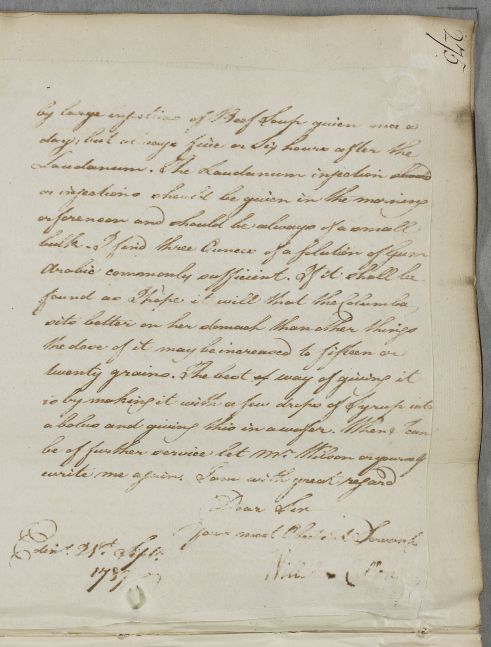 275
by large injections of Beef Soup given once a
day; but always five or Six hours after the
Laudanum. The Laudanum injection
or injections should be given in the morning
or forenoon and should be always of a small
bulk. I find three Ounces of a Solution of Gum
Arabic commonly sufficient. If it shall be
found as I hope it will that the Columba
sits better on her stomach than other things
the dose of it may be increased to fifteen or
twenty grains. The best of way of giving it
is by making it with a few drops of Syrup into
a bolus and giving this in a wafer. When I can
be of further service let Mr Wilson or yourself
write me again. I am with great regard
Dear Sir
Your most Obedient Servant
Edinr 21st Septr